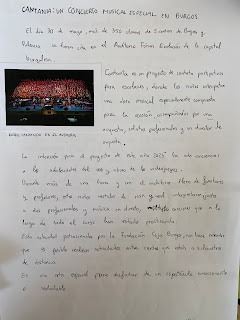 CANTANIA: UN CONCIERTO MUSICAL ESPECIAL EN BURGOS
El día 30 de mayo, más de 350 alumnos de centros de Burgos y
Palencia se dieron cita en el Auditorio Forum Evolución de la capital
burgalesa.
Cantania es un proyecto de cantata participativa
para escolares, donde los niños interpretan
una obra musical especialmente compuesta
para la ocasión, acompañados por una
orquesta, solistas profesionales y un director de
orquesta.
La intención para el proyecto de este año 2023 ha sido
a los adolescentes del uso y abuso de los videojuegos.
Durante más de una hora y con el auditorio lleno de familiares
y profesores, estos niños vestidos de rojo y interpretaron junto
a dos profesionales y música en directo, canciones que a lo
largo de todo el curso han estado practicando.
Esta actividad patrocinada por la Fundación Caja Burgos, nos hace sentir
que es posible realizar actividades entre centros que están a kilómetros
de distancia.
Es una cita especial para disfrutar de un espectáculo emocionante
e inolvidable